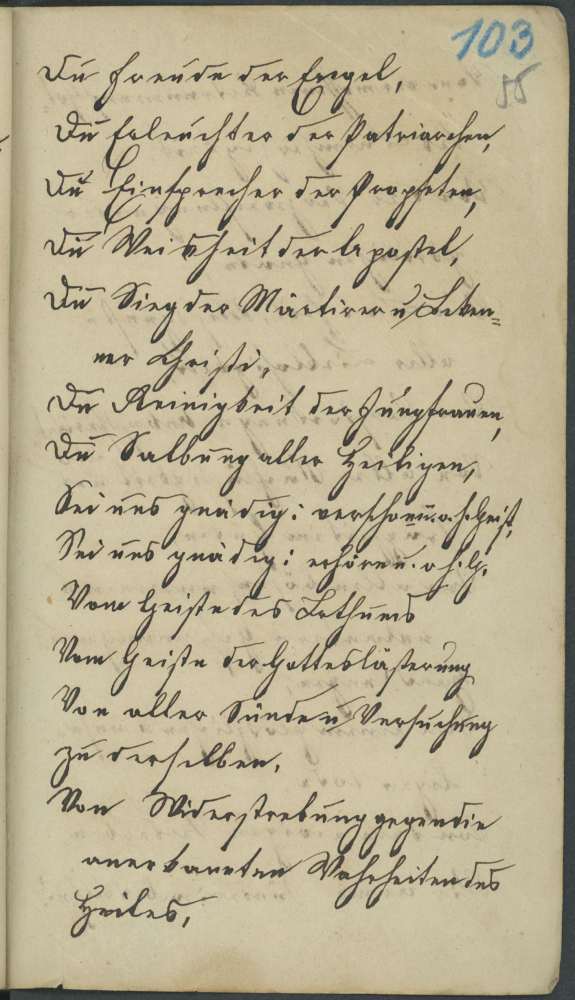 103
55
Du Freude der Engel,
Du Erleuchter der Patriarchen,
Du Einsprecher der Propheten,
Du Weisheit der Apostel,
Du Sieg der Märtirer u. Beken=
ner Christi,
Du Reinigkeit der Jungfrauen,
Du Salbung aller Heiligen,
Sei uns gnädig: verschone u. o h. Geist,
Sei uns gnädig: erhöre u. o h. G.
Vom Geiste des Irthums
Vom Geiste der Gotteslästerung
Von aller Sünde u. Versuchung
zu derselben,
Von Widerstrebung gegen die
anerkannten Wahrheiten des
Heiles,